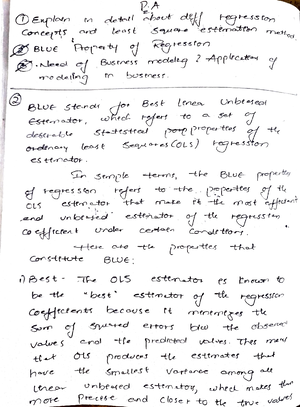 P.A
① Explain in detail about diff regression
concepts and least square estimation method.
② BLUE Property of Regression
③ Need of Business modeling? Application of
modeling in business.
② BLUE stands for Best Linear Unbiased
Estimator, which refers to a set of
desirable statistical properties of the
ordinary least Squares (OLS) regression
estimator.
In simple terms, the BLUE properties
of regression refer to the properties of the
OLS estimator that make it the most efficient
and unbiased estimator of the regression
coefficient under certain conditions.
Here are the properties that
constitute BLUE:
1) Best - The OLS estimator is known to
be the "best" estimator of the regression
coefficients because it minimizes the
sum of squared errors b/w the observed
values and the predicted values. This means
that OLS produces the estimates that
have the smallest variance among all
linear unbiased estimators, which makes them
more precise and closer to the true values